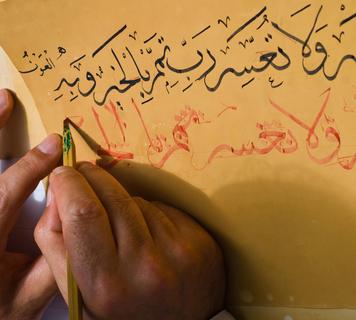 وَلَا تُعَسِّر رَبِّ تَمِّمْ بِالْخَيْرِ وَبِهِ الْعَوْن
ولا تعسر تمم